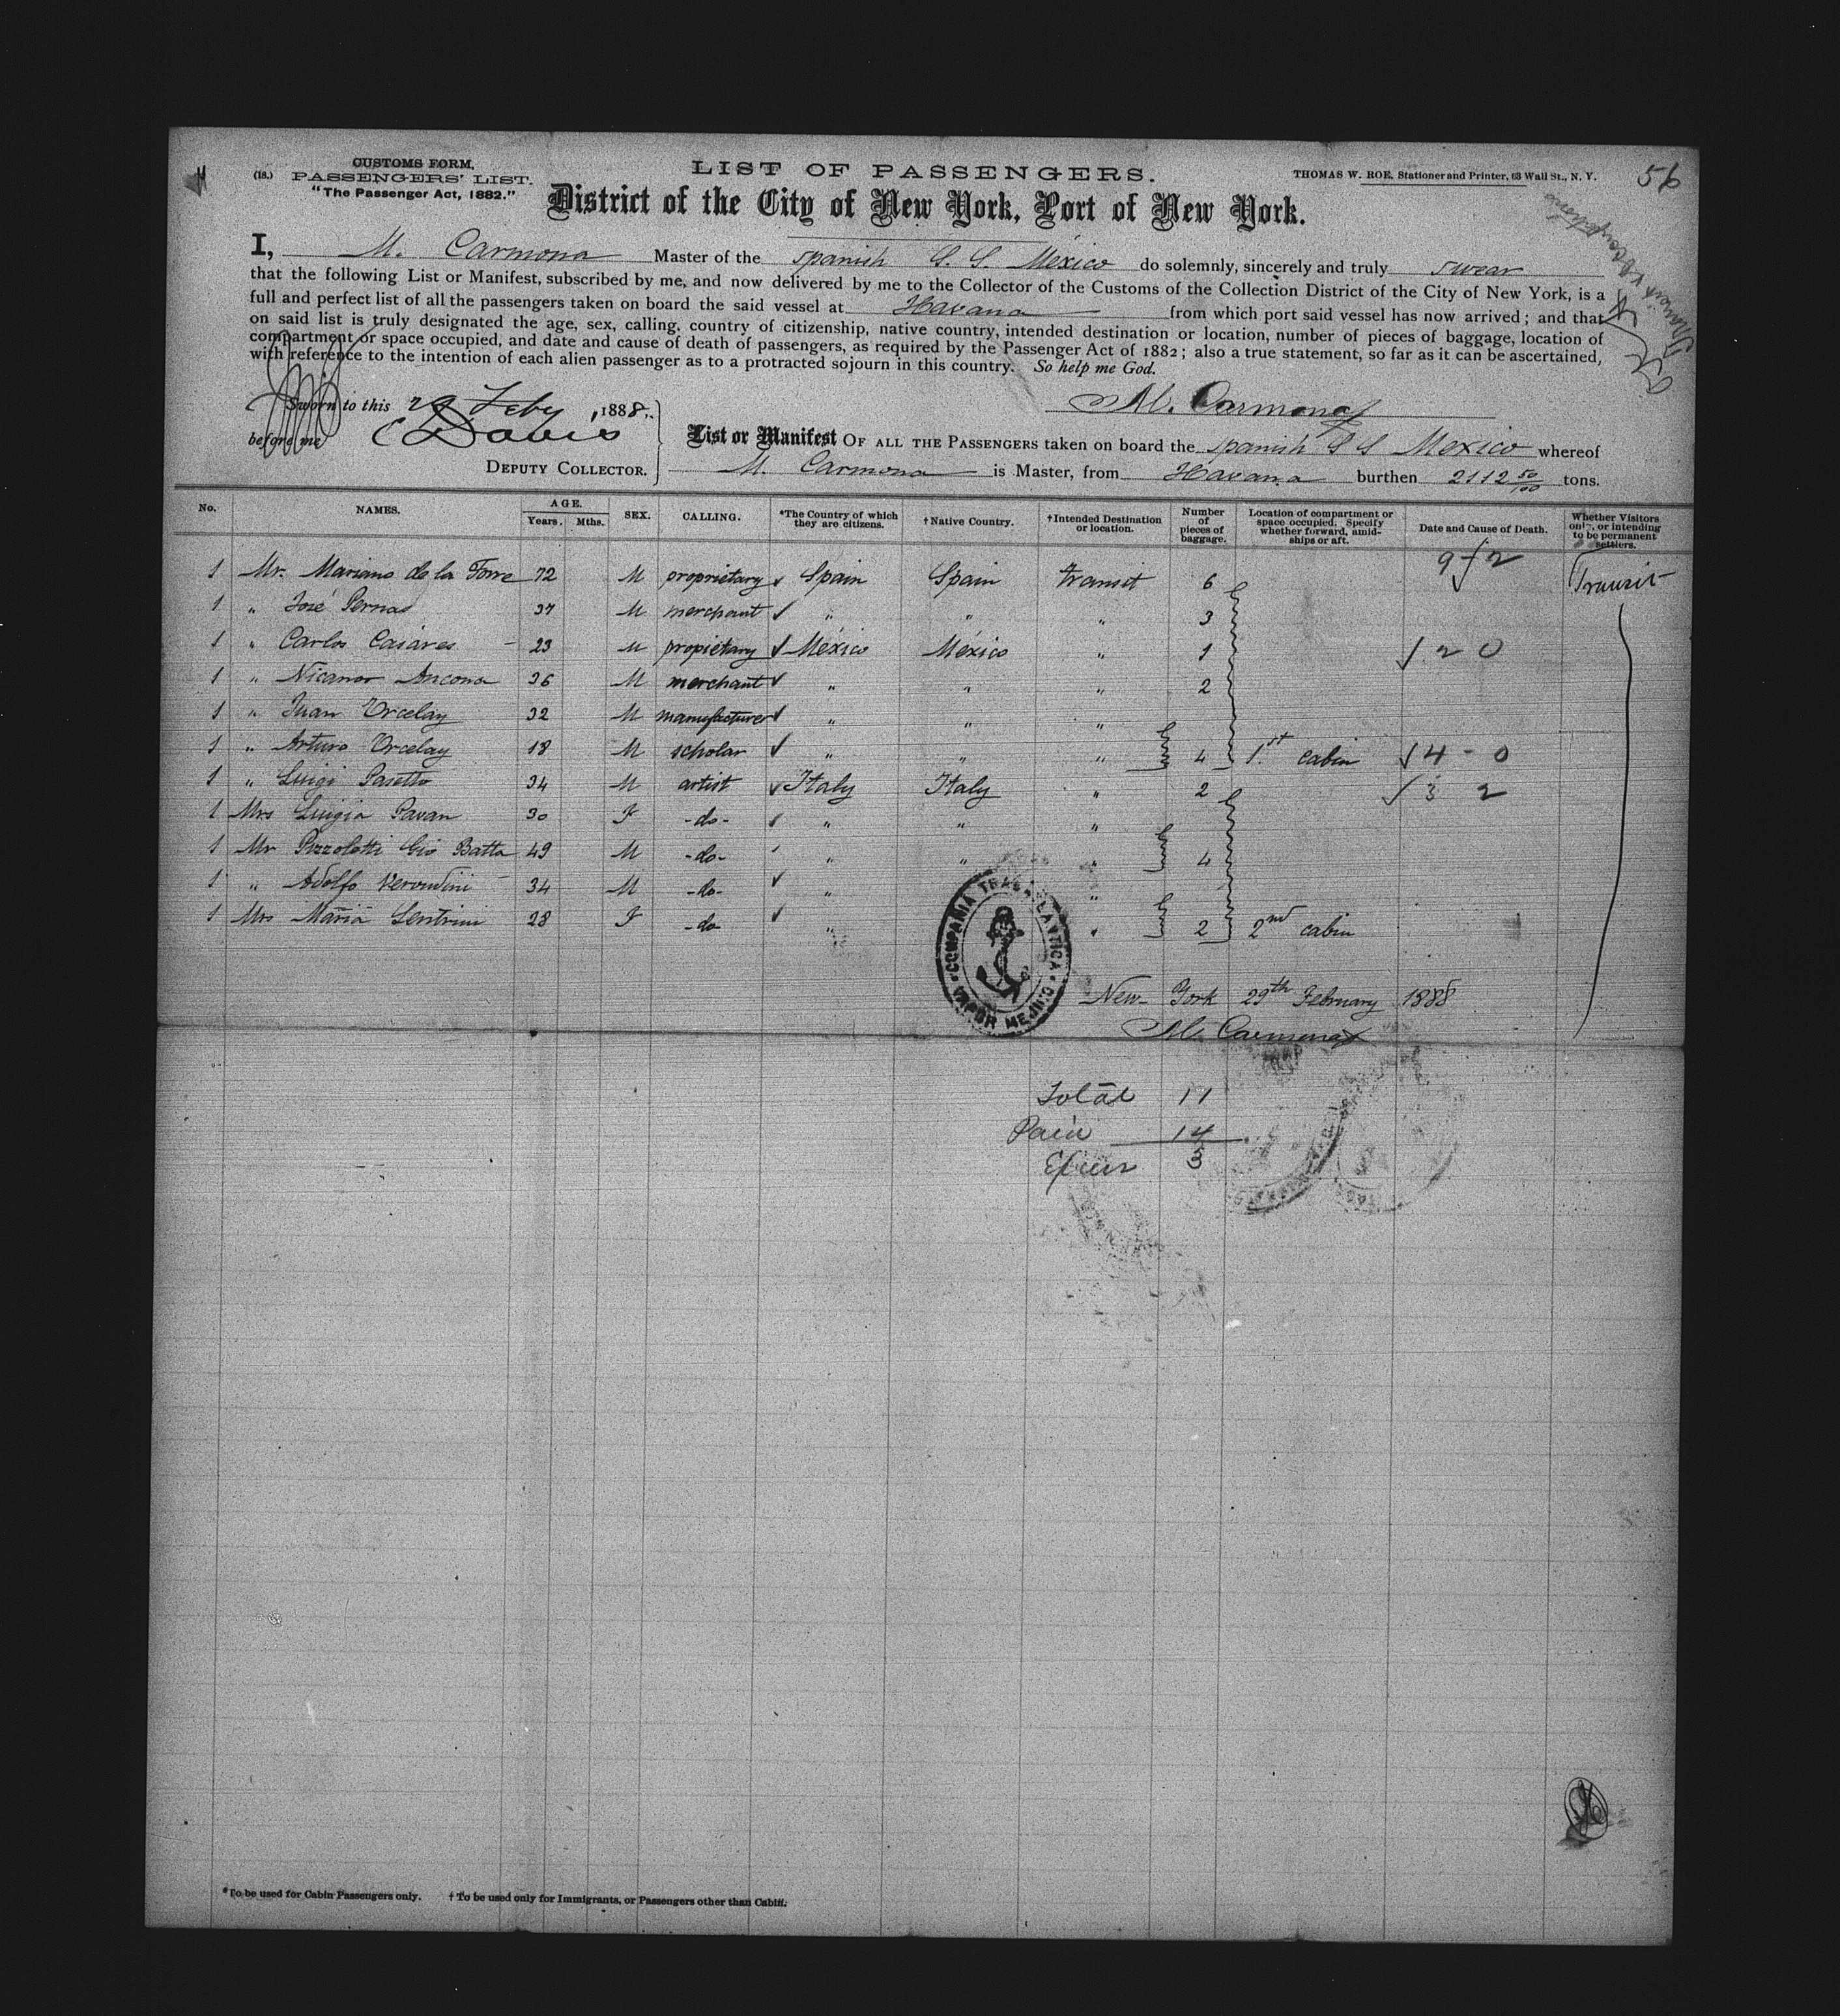 56
CUSTOMS FORM.
(18.) PASSENGERS' LIST.
"The Passenger Act, 1882."
LIST OF PASSENGERS.
THOMAS W. ROE, Stationer and Printer, 63 Wall St., N. Y.
District of the City of New York, Port of New York.
I, M. Carmona Master of the Spanish S. S. Mexico do solemnly, sincerely and truly swear
that the following List or Manifest, subscribed by me, and now delivered by me to the Collector of the Customs of the Collection District of the City of New York, is a
full and perfect list of all the passengers taken on board the said vessel at Havana from which port said vessel has now arrived; and that
on said list is truly designated the age, sex, calling. country of citizenship, native country, intended destination or location, number of pieces of baggage, location of
compartment or space occupied, and date and cause of death of passengers, as required by the Passenger Act of 1882; also a true statement, so far as it can be ascertained,
with reference to the intention of each alien passenger as to a protracted sojourn in this country. So help me God.
Sworn to this 29 Feby, 1888.
M. Carmona
before me C Davis
DEPUTY COLLECTOR.
List or Manifest OF ALL THE PASSENGERS taken on board the Spanish S S Mexico whereof
M. Carmona is Master, from Havana burthen 2112 50/100 tons.
No. NAMES. AGE. Years. Mths. SEX. CALLING. *The Country of which they are citizens. †Native Country. †Intended Destination or location. Number of pieces of baggage. Location of compartment or space occupied. Specify whether forward, amid-ships or aft. Date and Cause of Death. Whether Visitors only, or intending to be permanent settlers.
1 Mr. Mariano de la Torre 72 M proprietary Spain Spain transit 6 9 2 Transit
1 " José Pernas 37 M merchant " " " 3
1 " Carlos Casáres 23 M propietary México México " 1 2 0
1 " Nicanor Ancona 36 M merchant " " " 2
1 " Juan Urcelay 32 M manufacturer " " "
1 " Arturo Urcelay 18 M scholar " " " 4 1st cabin 4 - 0
1 " Luigi Pasetto 34 M artist Italy Italy " 2 3 2
1 Mrs Luigia Pavan 30 F -do- " " "
1 Mr Pizzolotti Gio Batta 49 M -do- " " " 4
1 " Adolfo 34 M -do- " "
1 Mrs Maria 28 F -do- " " 2 2nd cabin
COMPAÑIA TRASATLANTICA
VAPOR MEJICO
New-York 29th February 1888
M. Carmona
Total 11
Paid 14
3
*To be used for Cabin Passengers only. † To be used only for Immigrants, or Passengers other than Cabin.